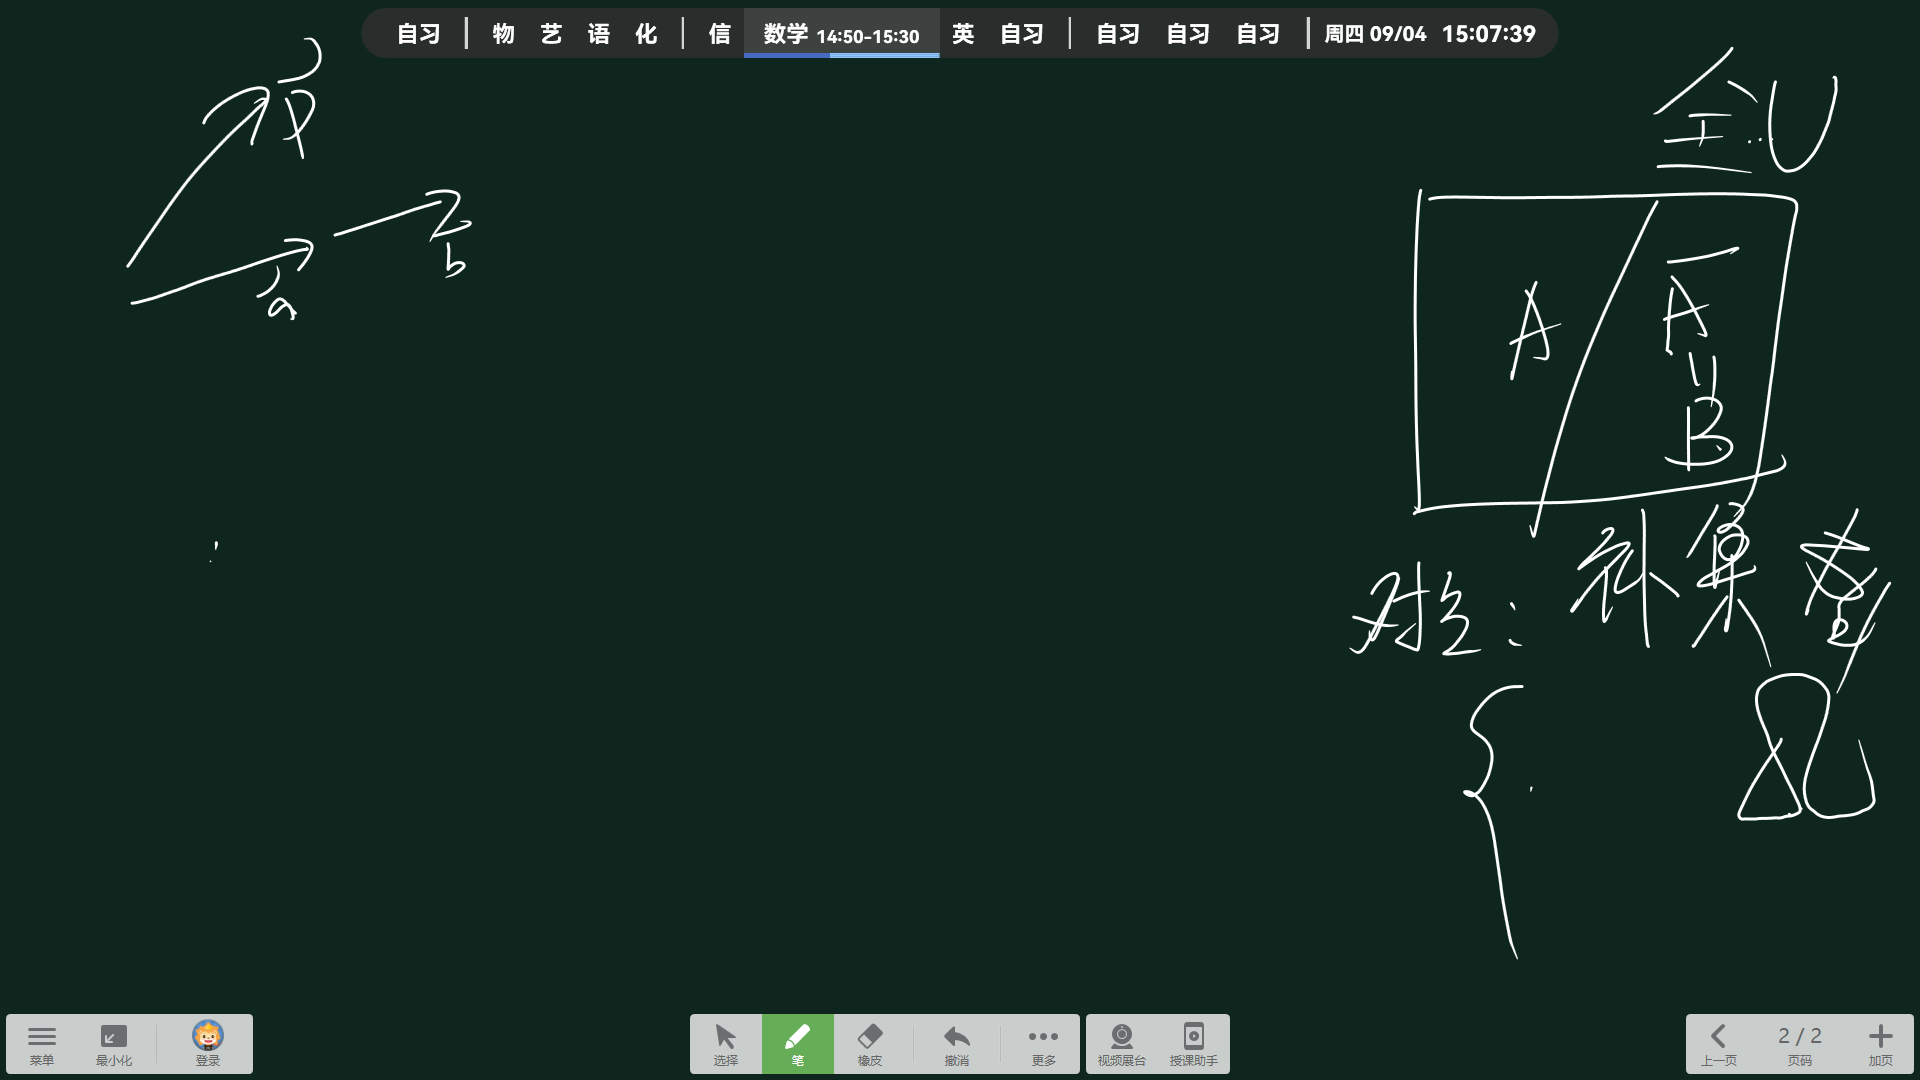 自习 | 物 艺 语 化 | 信 数学 14:50-15:30 英 自习 | 自习 自习 自习 | 周四 09/04 15:07:39
全U
P
b
a
A
A
B
对立: 补集
菜单 最小化 登录
选择 笔 橡皮 撤消 更多
视频展台 授课助手
上一页 2 / 2 页码 加页